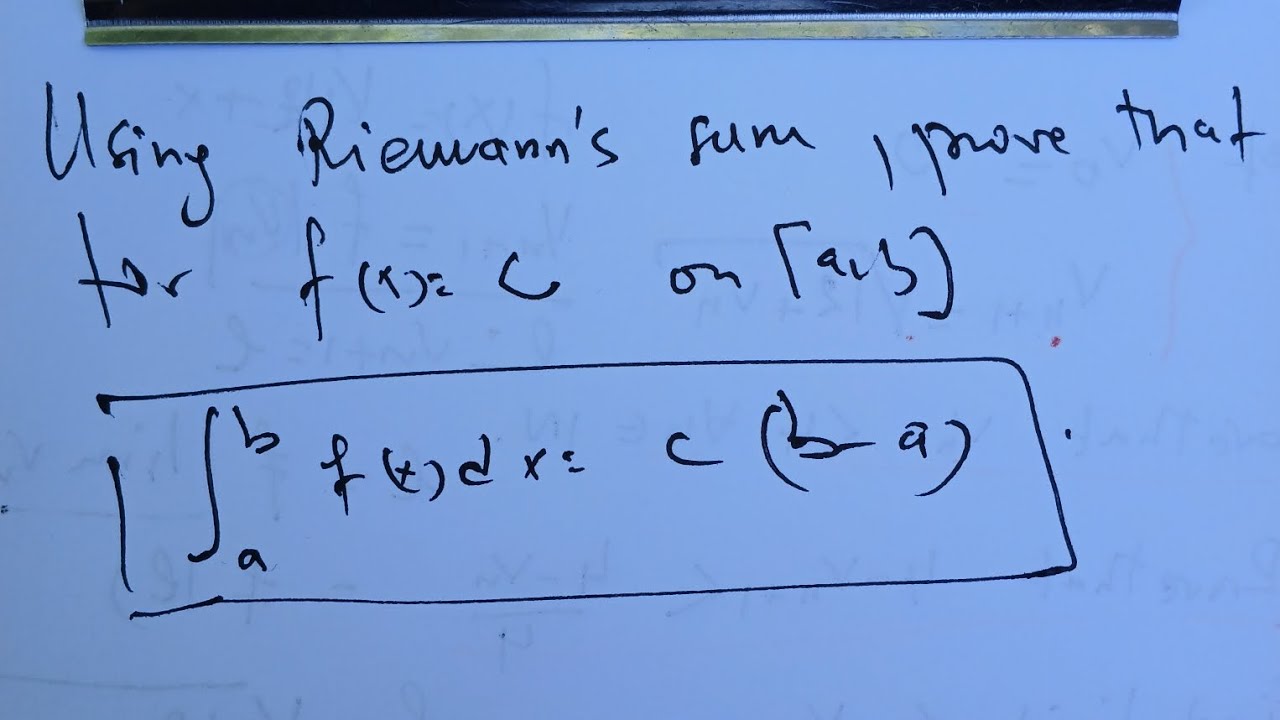 Using Riemann's sum, prove that
for f(x) = c on [a,b]
∫_a^b f(x)dx = c(b-a).